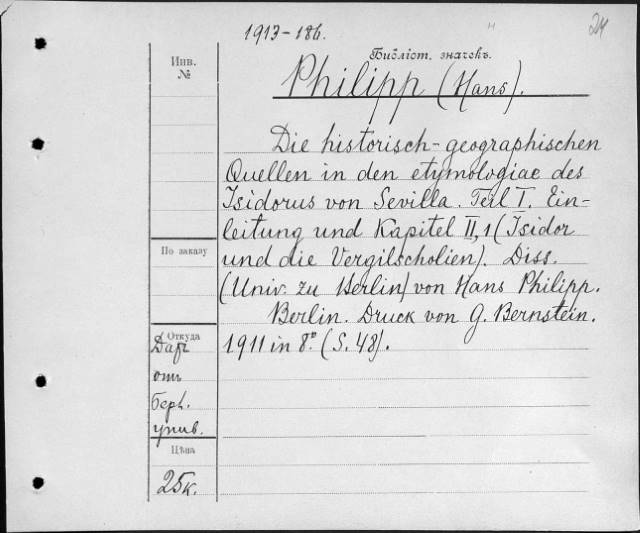 1913-186.
24
Инв.
№
Библіот. значекъ.
Philipp (Hans).
Die historisch-geographischen
Quellen in den etymologiae des
Isidorus von Sevilla. Teil I. Ein-
leitung und Kapitel II, 1 (Isidor
По заказу
und die Vergilscholien). Diss.
(Univ. zu Berlin) von Hans Philipp.
Berlin. Druck von G. Bernstein.
Откуда
1911 in 8º (S. 48).
Даръ
отъ
Берл.
унив.
Цѣна
25к.